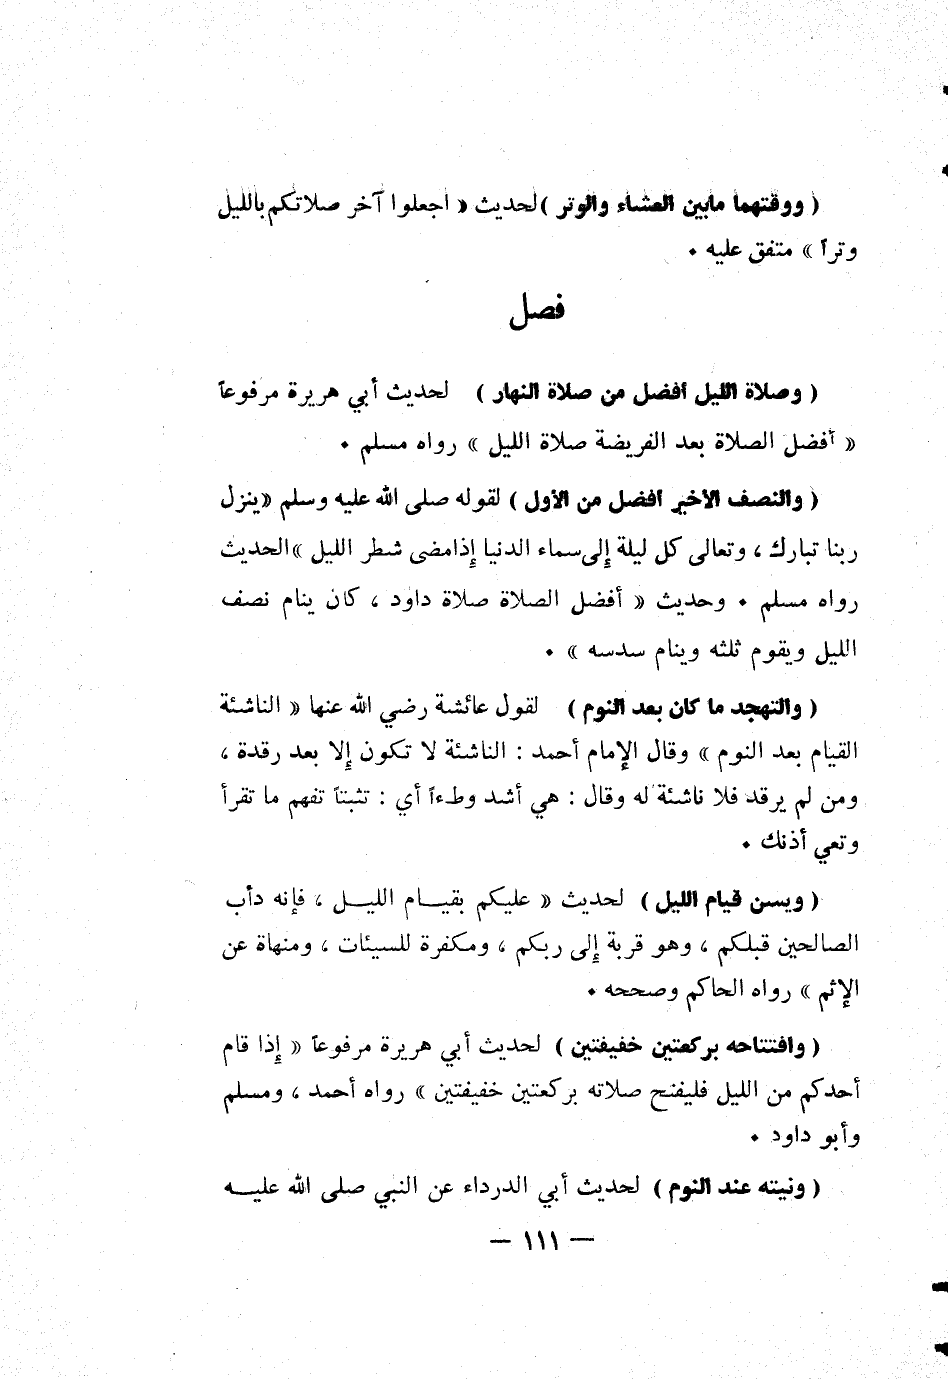 ( ووقتهما مابين العشاء والوتر )لحديث « اجعلوا آخر صلاتكم بالليل
وتراً » متفق عليه .
فصل
( وصلاة الليل أفضل من صلاة النهار ) لحديث أبي هريرة مرفوعاً
« أفضل الصلاة بعد الفريضة صلاة الليل » رواه مسلم .
( والنصف الأخير أفضل من الأول ) لقوله صلى الله عليه وسلم «ينزل
ربنا تبارك ، وتعالى كل ليلة إلى سماء الدنيا إذا مضى شطر الليل »الحديث
رواه مسلم . وحديث « أفضل الصلاة صلاة داود ، كان ينام نصف
الليل ويقوم ثلثه وينام سدسه » .
( والتهجد ما كان بعد النوم ) لقول عائشة رضي الله عنها « الناشئة
القيام بعد النوم » وقال الإمام أحمد : الناشئة لا تكون إلا بعد رقدة ،
ومن لم يرقد فلا ناشئة له وقال : هي أشد وطءاً أي : تثبتاً تفهم ما تقرأ
وتعي أذنك .
( ويسن قيام الليل ) لحديث « عليكم بقيـــام الليـــل ، فإنه دأب
الصالحين قبلكم ، وهو قربة إلى ربكم ، ومكفرة للسيئات ، ومنهاة عن
الإثم » رواه الحاكم وصححه .
( وافتتاحه بركعتين خفيفتين ) لحديث أبي هريرة مرفوعاً « إذا قام
أحدكم من الليل فليفتح صلاته بركعتين خفيفتين » رواه أحمد ، ومسلم
وأبو داود .
( ونيته عند النوم ) لحديث أبي الدرداء عن النبي صلى الله عليـــه
— ١١١ —